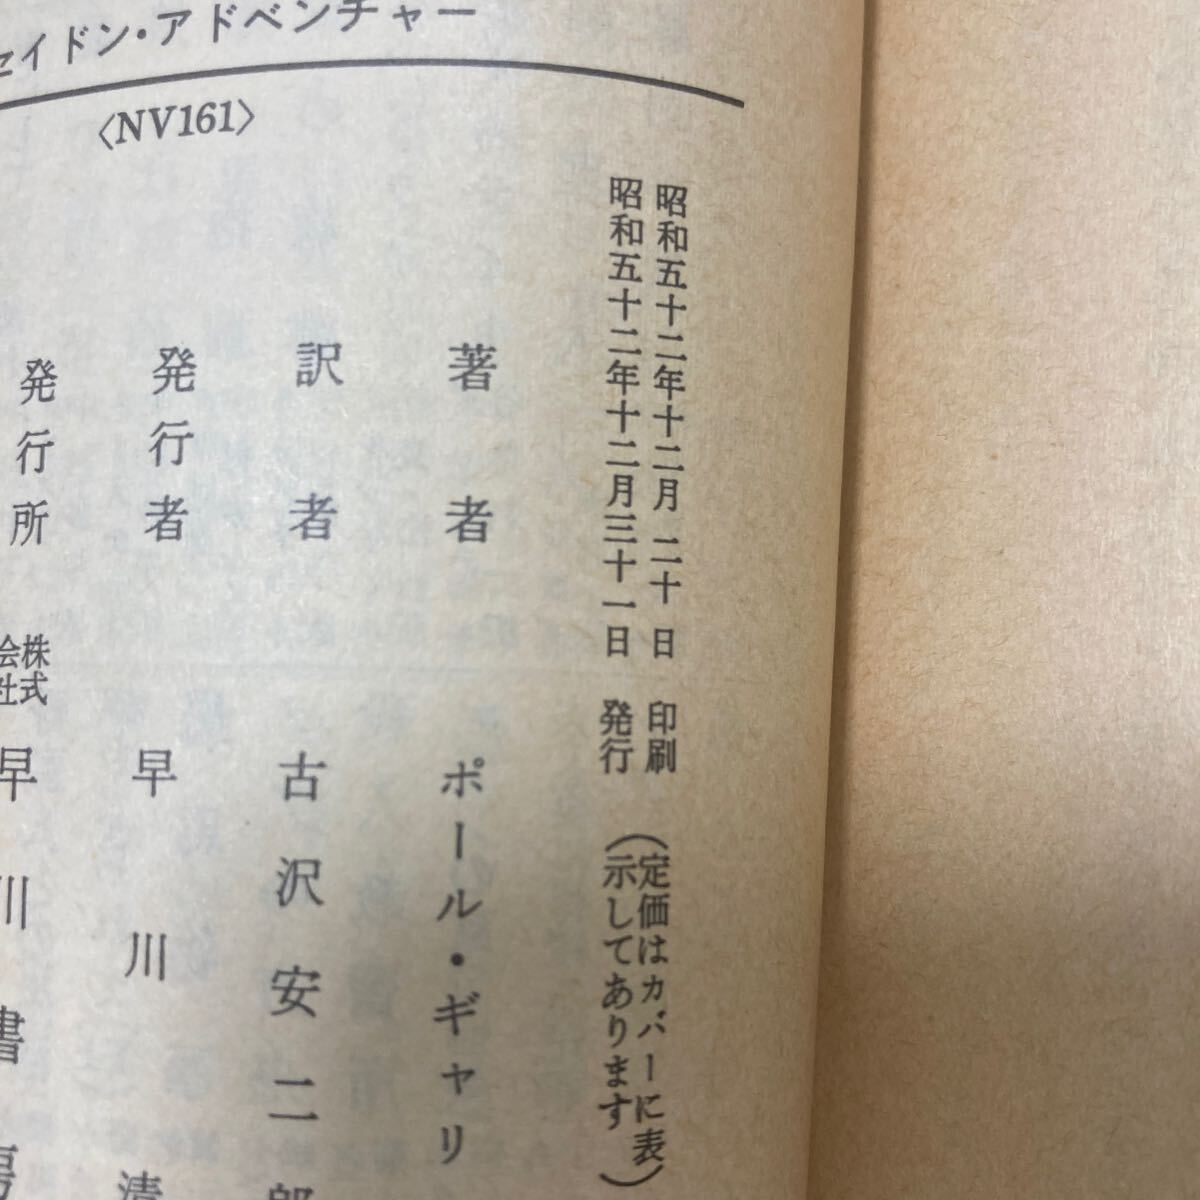 セイドン・アドベンチャー
〈NV161〉
昭和五十二年十二月二十日 印刷
昭和五十二年十二月三十一日 発行
(定価はカバーに表
示してあります)
著者 ポール・ギャリ
訳者 古沢安二郎
発行者 早川清
発行所 株式会社 早川書房